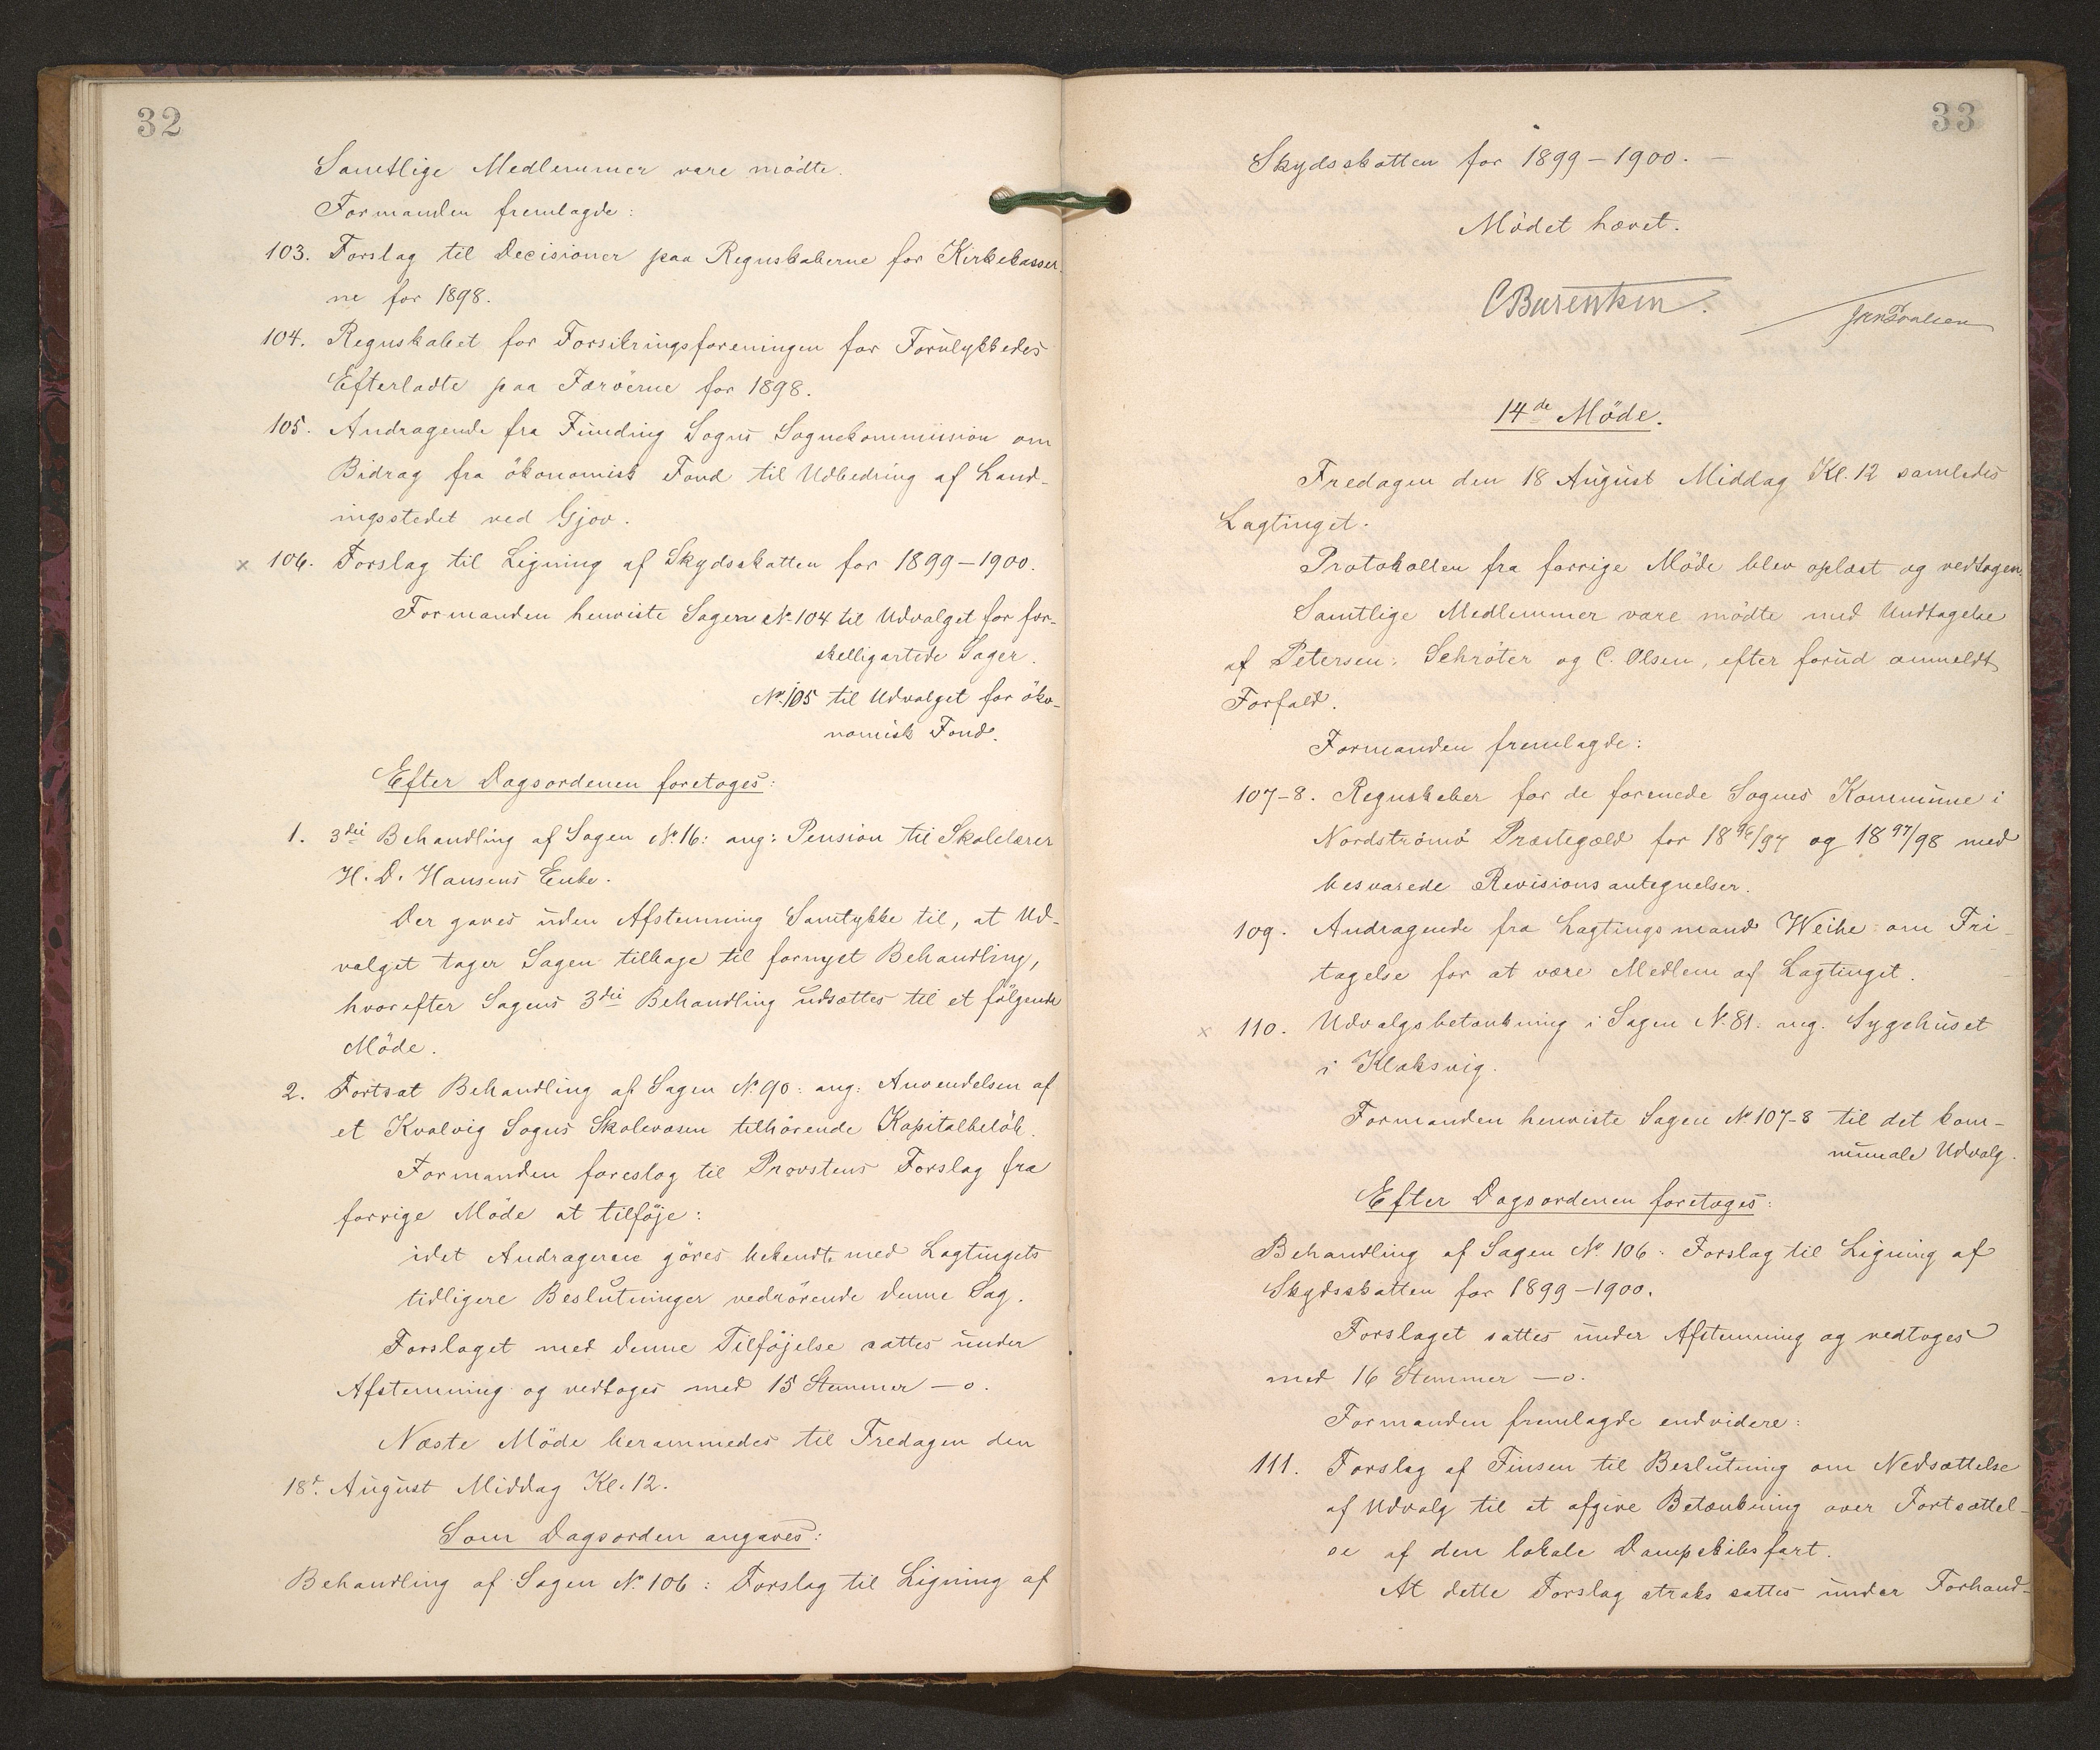 32
Samtlige Medlemmer vare mödte.
Formanden fremlagde:
103. Forslag til Decisioner paa Regnskaberne for Kirkekasser-
ne for 1898.
104. Regnskabet for Forsikringsforeningen for Forulykkedes
Efterladte paa Færöerne for 1898.
105. Andragende fra Funding Sogns Sognekommission om
Bidrag fra ökonomisk Fond til Udbedring af Land-
ingsstedet ved Gjov.
x 106. Forslag til Ligning af Skydsskatten for 1899-1900.
Formanden henviste Sagen No 104 til Udvalget for for-
skelligartede Sager.
No 105 til Udvalget for öko-
nomisk Fond.
Efter Dagsordenen foretoges:
1. 3die Behandling af Sagen No 16: ang: Pension til Skolelærer
H. D. Hansens Enke.
Der gaves uden Afstemning Samtykke til, at Ud-
valget tager Sagen tilbage til fornyet Behandling,
hvorefter Sagens 3die Behandling udsættes til et fölgende
Möde.
2. Fortsat Behandling af Sagen No 90: ang: Anvendelsen af
et Kvalvig Sogns Skolevæsen tilhörende Kapitalbelöb.
Formanden foreslog til Provstens Forslag fra
forrige Möde at tilföje:
idet Andragerne göres bekendt med Lagtingets
tidligere Beslutninger vedrörende denne Sag.
Forslaget med denne Tilföjelse sattes under
Afstemning og vedtoges med 15 Stemmer - o.
Næste Möde berammedes til Fredagen den
18d. August Middag Kl. 12.
Som Dagsorden angaves:
Behandling af Sagen No 106: Forslag til Ligning af
33
Skydsskatten for 1899-1900. -
Mödet hævet.
CBærentsen.
14de Möde.
Fredagen den 18 August Middag Kl. 12 samledes
Lagtinget.
Protokollen fra forrige Möde blev oplæst og vedtagen.
Samtlige Medlemmer vare mödte med Undtagelse
af Petersen, Schröter og C. Olsen, efter forud anmeldt
Forfald.
Formanden fremlagde:
107-8. Regnskaber for de forenede Sognes Kommune i
Nordströmö Præstegæld for 1896/97 og 1897/98 med
besvarede Revisionsantegnelser.
109. Andragende fra Lagtingsmand Weihe om Fri-
tagelse for at være Medlem af Lagtinget.
x 110. Udvalgsbetænkning i Sagen No 81. ang. Sygehuset
i Klaksvig.
Formanden henviste Sagen No 107-8 til det kom-
munale Udvalg.
Efter Dagsordenen foretoges:
Behandling af Sagen No 106: Forslag til Ligning af
Skydsskatten for 1899-1900.
Forslaget sattes under Afstemning og vedtoges
med 16 Stemmer - o.
Formanden fremlagde endvidere:
111. Forslag af Finsen til Beslutning om Nedsættelse
af Udvalg til at afgive Betænkning over Fortsættel-
se af den lokale Dampskibsfart.
At dette Forslag straks sattes under Forhand-